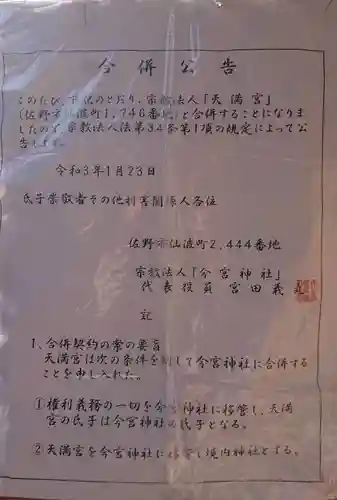 合併公告
このたび、下記のとおり、宗教法人「天満宮」
(佐野市仙波町1,746番地)と合併することになりま
したので宗教法人法第34条第1項の規定によって公
告します。
令和3年1月23日
氏子崇敬者その他利害関係人各位
佐野市仙波町2,444番地
宗教法人「今宮神社」
代表役員 宮田義
記
1、合併契約の案の要旨
天満宮は次の条件を して今宮神社に合併する
ことを申し入れた。
①権利義務の一切を今宮神社に移管し、天満
宮の氏子は今宮神社の氏子となる。
②天満宮を今宮神社に し境内神社とする。